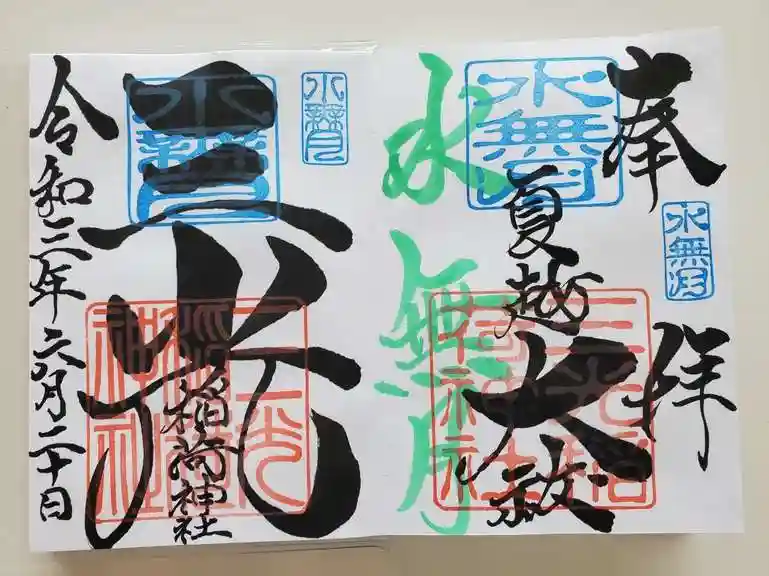 奉拝
水無月
水無月
夏越
大祓
三光稲荷神社
水無月
水無月
三光
稲荷神社
水無月
三光稲荷神社
令和三年六月二十日